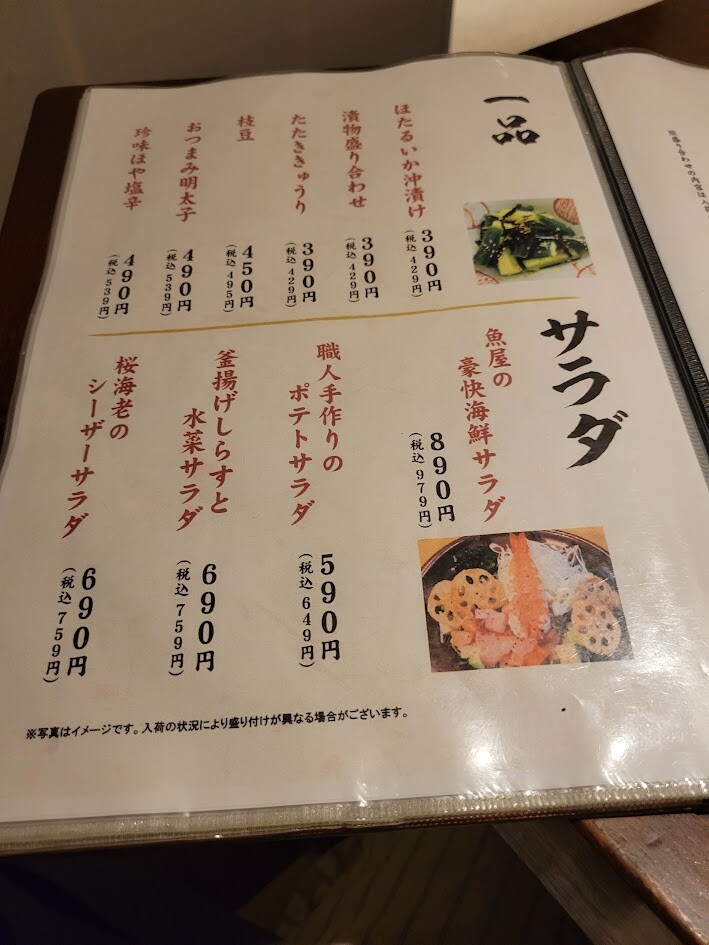 一品
ほたるいか沖漬け
390円
(税込429円)
漬物盛り合わせ
390円
(税込429円)
たたききゅうり
390円
(税込429円)
枝豆
450円
(税込495円)
おつまみ明太子
490円
(税込539円)
珍味ほや塩辛
490円
(税込539円)
サラダ
魚屋の
豪快海鮮サラダ
890円
(税込979円)
職人手作りの
ポテトサラダ
590円
(税込649円)
釜揚げしらすと
水菜サラダ
690円
(税込759円)
桜海老の
シーザーサラダ
690円
(税込759円)
※写真はイメージです。入荷の状況により盛り付けが異なる場合がございます。
※盛り合わせの内容は入荷